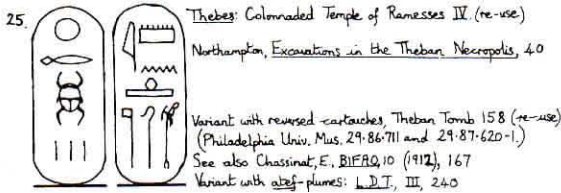 25.
Thebes: Colonnaded Temple of Ramesses IV. (re-use)
Northampton, Excavations in the Theban Necropolis, 40
Variant with reversed cartouches, Theban Tomb 158 (re-use)
(Philadelphia Univ. Mus. 29.86.711 and 29.87.620-1.)
See also Chassinat, E., BIFAO, 10 (1912), 167
Variant with atef-plumes: L.D.T., III, 240